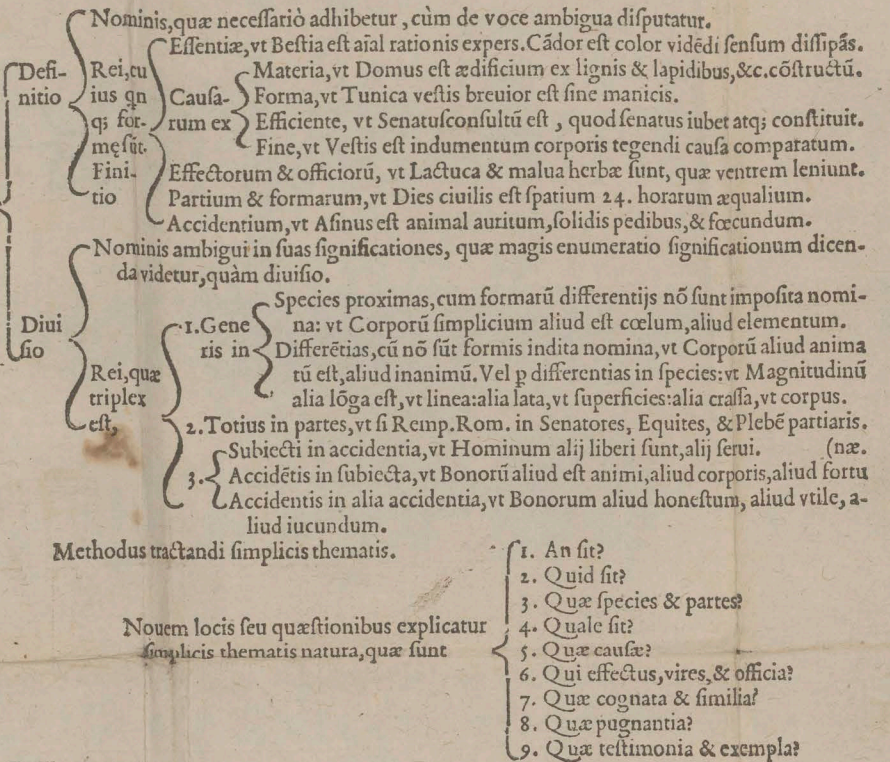 Nominis,quæ neceſſariò adhibetur ,cùm de voce ambigua diſputatur.
Eſſentiæ,vt Beſtia eſt aīal rationis expers.Cādor eſt color vidēdi ſenſum diſſipās.
Defi- Rei,cu Materia,vt Domus eſt ædificium ex lignis & lapidibus,&c.cōſtructū.
nitio ius qn Cauſa- Forma,vt Tunica veſtis breuior eſt ſine manicis.
q; for- rum ex Efficiente, vt Senatuſconſultū eſt , quod ſenatus iubet atq; conſtituit.
mę ſūt. Fine,vt Veſtis eſt indumentum corporis tegendi cauſa comparatum.
Fini- Effectorum & officiorū, vt Lactuca & malua herbæ ſunt, quæ ventrem leniunt.
tio Partium & formarum,vt Dies ciuilis eſt ſpatium 24. horarum æqualium.
Accidentium,vt Aſinus eſt animal auritum,ſolidis pedibus,& fœcundum.
Nominis ambigui in ſuas ſignificationes, quæ magis enumeratio ſignificationum dicen-
da videtur,quàm diuiſio.
Species proximas,cum formarū differentijs nō ſunt impoſita nomi-
Diui 1.Gene na: vt Corporū ſimplicium aliud eſt cœlum,aliud elementum.
ſio ris in Differētias,cū nō ſūt formis indita nomina,vt Corporū aliud anima
Rei,quæ tū eſt,aliud inanimū.Vel p differentias in ſpecies:vt Magnitudinū
triplex alia lōga eſt,vt linea:alia lata,vt ſuperficies:alia craſſa,vt corpus.
eſt, 2.Totius in partes,vt ſi Remp.Rom. in Senatores, Equites, & Plebē partiaris.
Subiecti in accidentia,vt Hominum alij liberi ſunt,alij ſerui. (næ.
3. Accidētis in ſubiecta,vt Bonorū aliud eſt animi,aliud corporis,aliud fortu
Accidentis in alia accidentia,vt Bonorum aliud honeſtum, aliud vtile, a-
liud iucundum.
Methodus tractandi ſimplicis thematis.
1. An ſit?
2. Quid ſit?
3. Quæ ſpecies & partes?
Nouem locis ſeu quæſtionibus explicatur 4. Quale ſit?
ſimplicis thematis natura,quæ ſunt 5. Quæ cauſæ?
6. Qui effectus,vires,& officia?
7. Quæ cognata & ſimilia?
8. Quæ pugnantia?
9. Quæ teſtimonia & exempla?